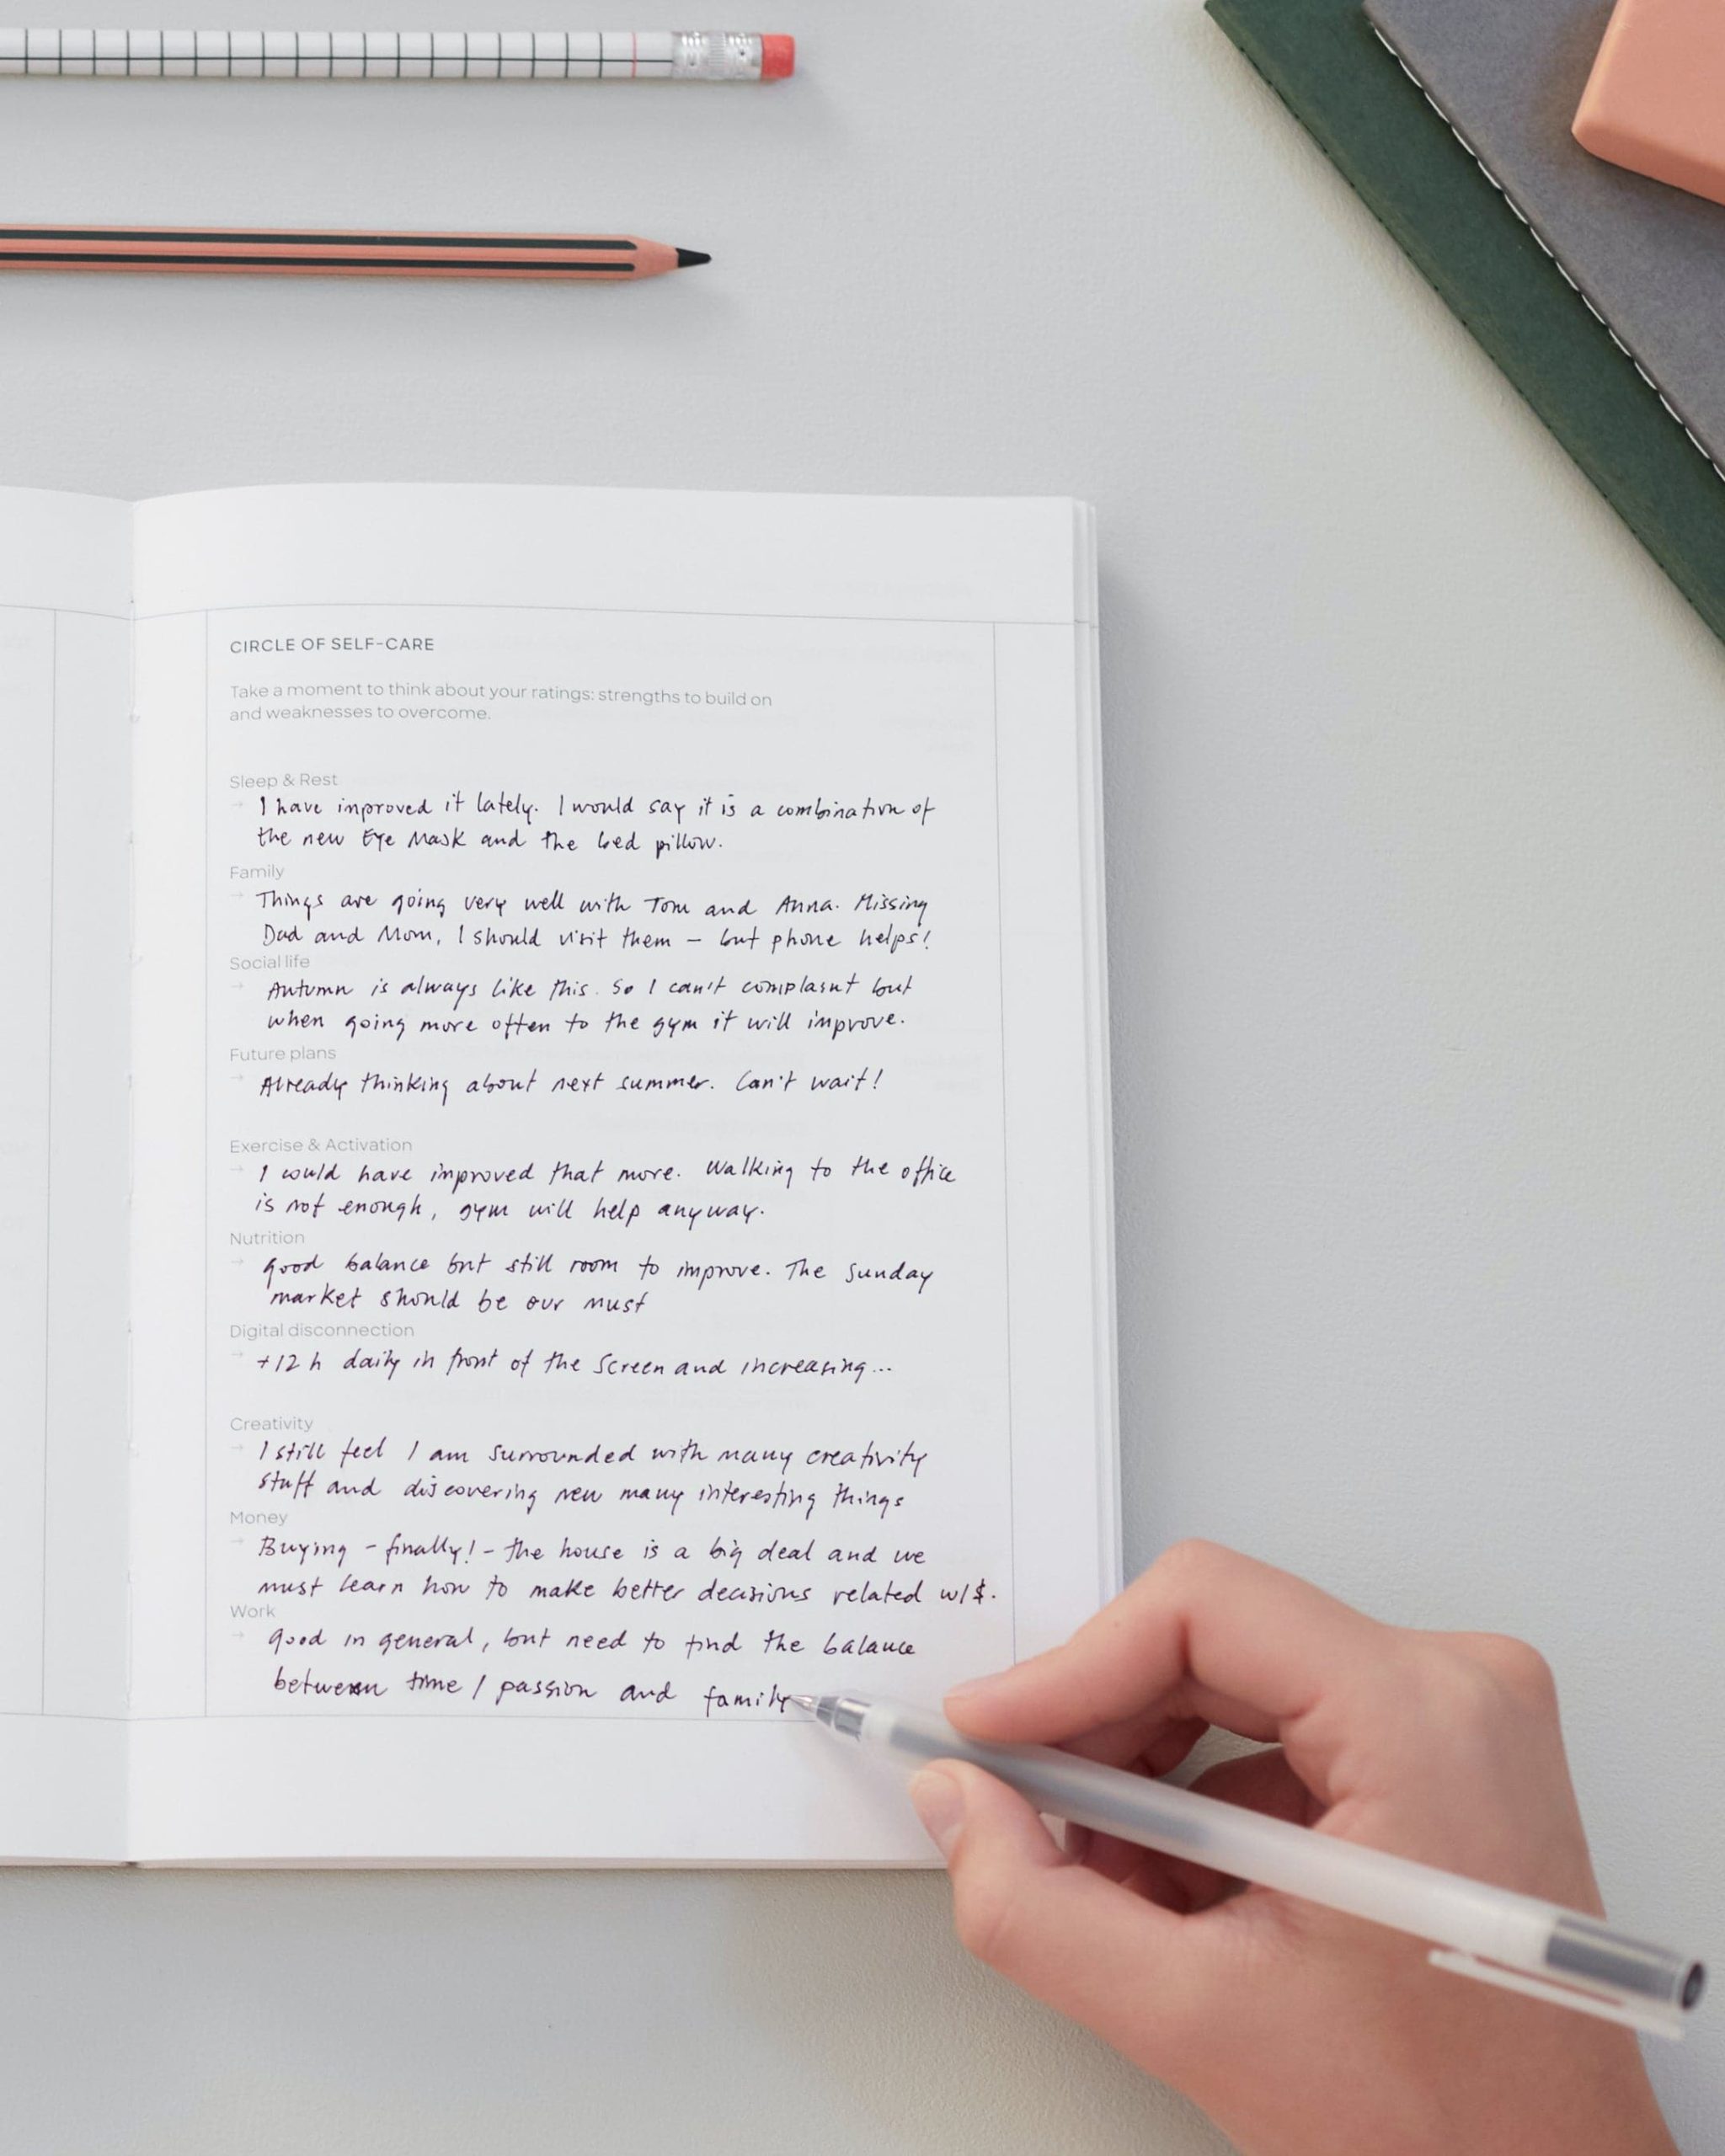 CIRCLE OF SELF-CARE
Take a moment to think about your ratings: strengths to build on
and weaknesses to overcome.
Sleep & Rest
→ I have improved it lately. I would say it is a combination of
the new Eye Mask and the bed pillow.
Family
→ Things are going very well with Tom and Anna. Missing
Dad and Mom, I should visit them – but phone helps!
Social life
→ Autumn is always like this. So I can't complaint but
when going more often to the gym it will improve.
Future plans
→ Already thinking about next summer. Can't wait!
Exercise & Activation
→ I could have improved that more. Walking to the office
is not enough, gym will help anyway.
Nutrition
→ good balance but still room to improve. The Sunday
market should be our must
Digital disconnection
→ +12 h daily in front of the screen and increasing...
Creativity
→ I still feel I am surrounded with many creativity
stuff and discovering new many interesting things
Money
→ Buying - finally! - the house is a big deal and we
must learn how to make better decisions related w/$.
Work
→ good in general, but need to find the balance
between time / passion and family